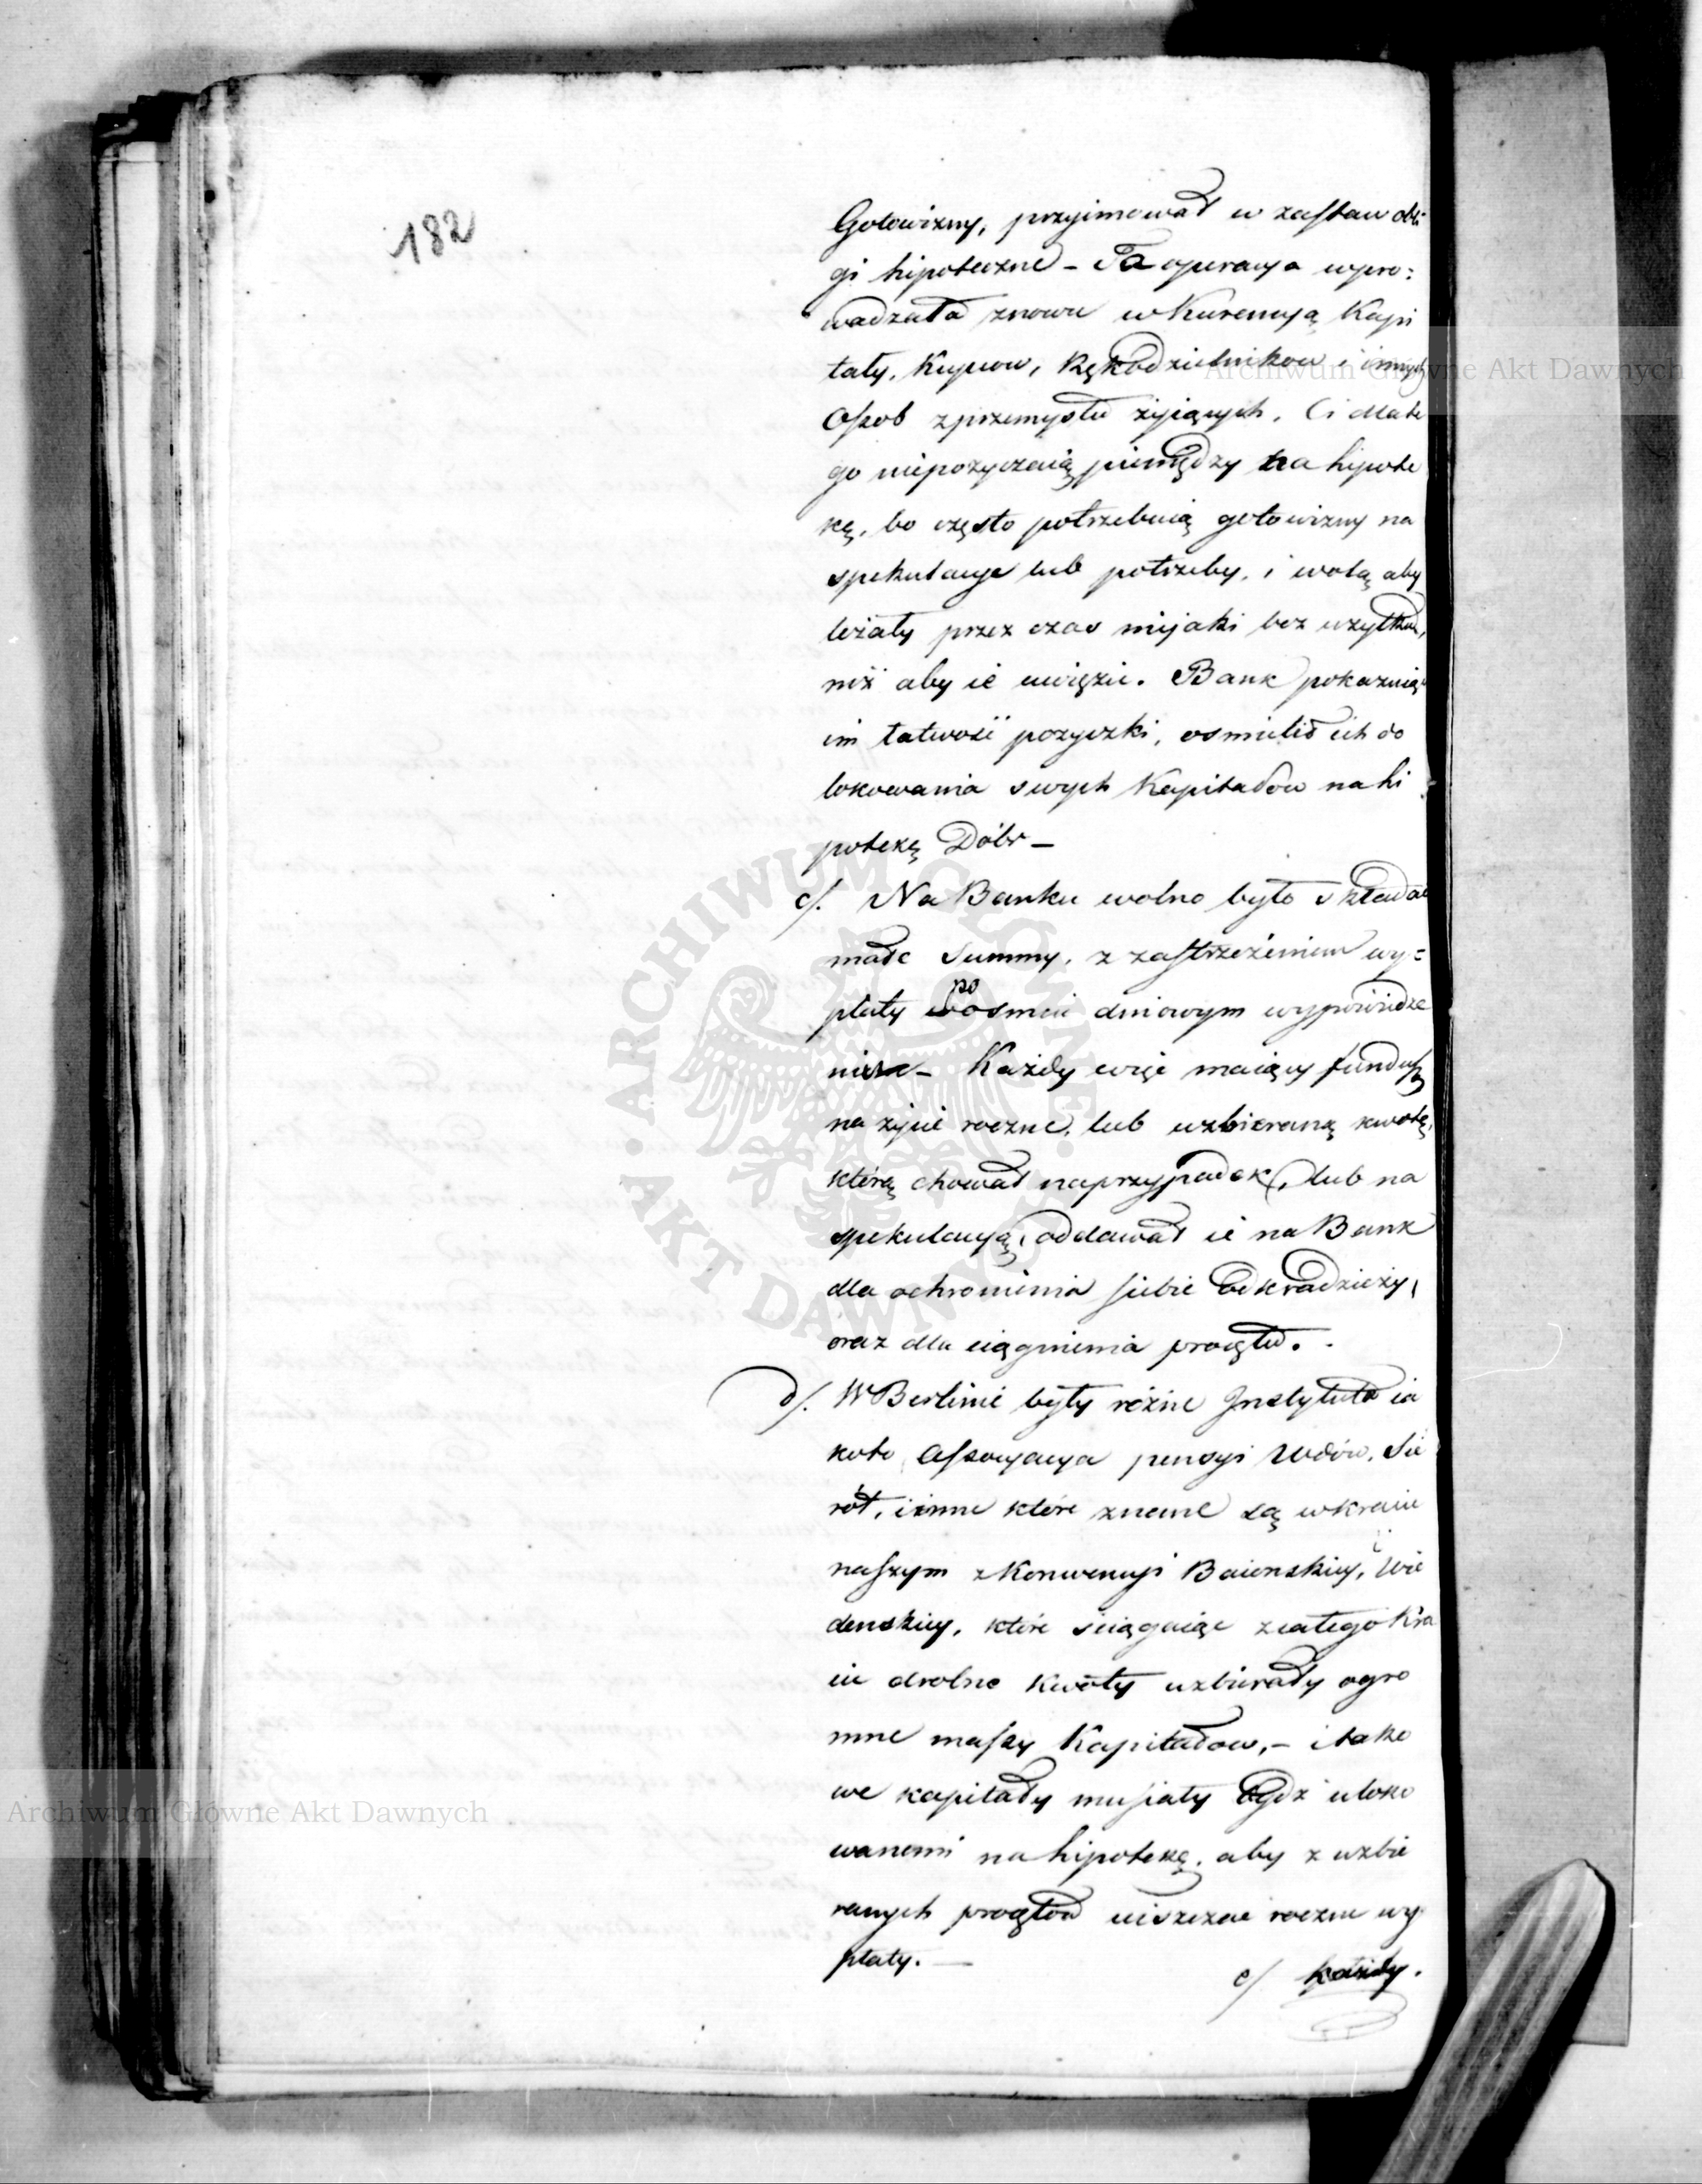 182
Gotowizny, przyimował w zastaw obli-
gi hipoteczne – Ta operacya wpro:
wadzała znowu w kurencyą Kapi
tały, Kupcow, Rękodzielnikow i innych
Osob z przemysłu żyiących. Ci dlate
go niepozyczaią pieniędzy na hipote
kę, bo często potrzebuią gotowizny na
spekulacye lub potrzeby, i wolą aby
leżały przez czas niejaki bez użytku,
niż aby ie uwięzic. Bank pokazuiąc
im łatwość pożyczki, osmielił ich do
lokowania swych Kapitałow na hi
potekę Dóbr –
c/. Na Banku wolno było składac
małe Summy, z zastrzeżeniem wy=
płaty po osmio dniowym wypowiedze
niu – Każdy więc maiący fundusz
na życie roczne, lub uzbieraną kwotę,
którą chował na przypadek, lub na
spekulacyą, oddawał ie na Bank
dla ochronienia siebie od kradzieży,
oraz dla ciągnienia procętu.
d/. W Berlinie były różne Instytuta ia
koto Assocyacya pensyi Wdów, Sie
rót, i inne które znane są w kraiu
naszym z Konwencyi Baionskiey, i Wie
denskiey, które sciągaiąc z całego Kra
iu drobne kwoty uzbierały ogro
mne massy Kapitałow, – i tako
we kapitały musiały bydz uloko
wanemi na hipotekę, aby z uzbie
ranych procętow uiszczac roczne wy
płaty. –
e/ każdy.
Archiwum Główne Akt Dawnych
Archiwum Główne Akt Dawnych
ARCHIWUM GŁÓWNE · AKT DAWNYCH ·